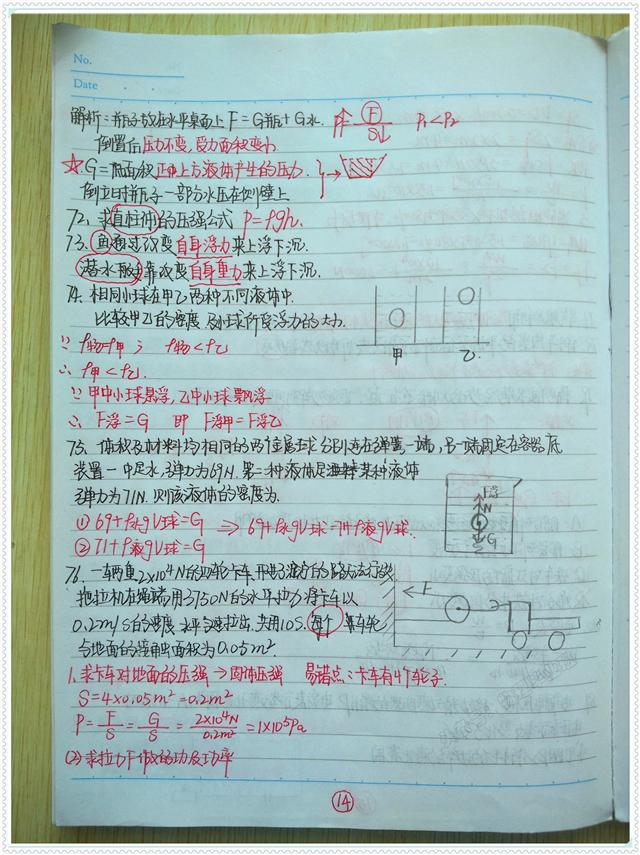 No.
Date
解析:瓶子放在水平桌面上 F=G瓶+G水. P↑=F/S↓ P₁<P₂
倒置后压力不变,受力面积变小
☆G=底面积正上方液体产生的压力.
倒立时瓶子一部分水压在侧壁上
72. 求直柱体的压强公式 P=ρgh.
73. 鱼通过改变自身浮力来上浮下沉.
潜水艇靠改变自身重力来上浮下沉.
74. 相同小球在甲乙两种不同液体中.
比较甲乙的密度及小球所受浮力的大小.
甲 乙.
∵ ρ物=ρ甲; ρ物<ρ乙
∴ ρ甲<ρ乙.
∵ 甲中小球悬浮,乙中小球飘浮
∴ F浮=G 即 F浮甲=F浮乙
75. 体积及材料均相同的两个金属球分别连在弹簧一端,另一端固定在容器底
装置一中是水,弹力为69N. 第二种液体是某种液体
弹力为71N. 则该液体的密度为.
F浮
N
G
① 69+ρ水gV球=G ⇒ 69+ρ水gV球=71+ρ液gV球.
② 71+ρ液gV球=G
76. 一辆重2×10⁴N的四轮卡车,
用3750N的水平拉力将卡车以
F
0.2m/s的速度水平匀速拉出.共用10S.每个车轮
与地面的接触面积为0.05m².
1.求卡车对地面的压强→固体压强 易错点:卡车有4个轮子.
S=4×0.05m²=0.2m²
P=F/S=G/S=2×10⁴N/0.2m²=1×10⁵Pa
(2)求拉力F做的功及功率
14